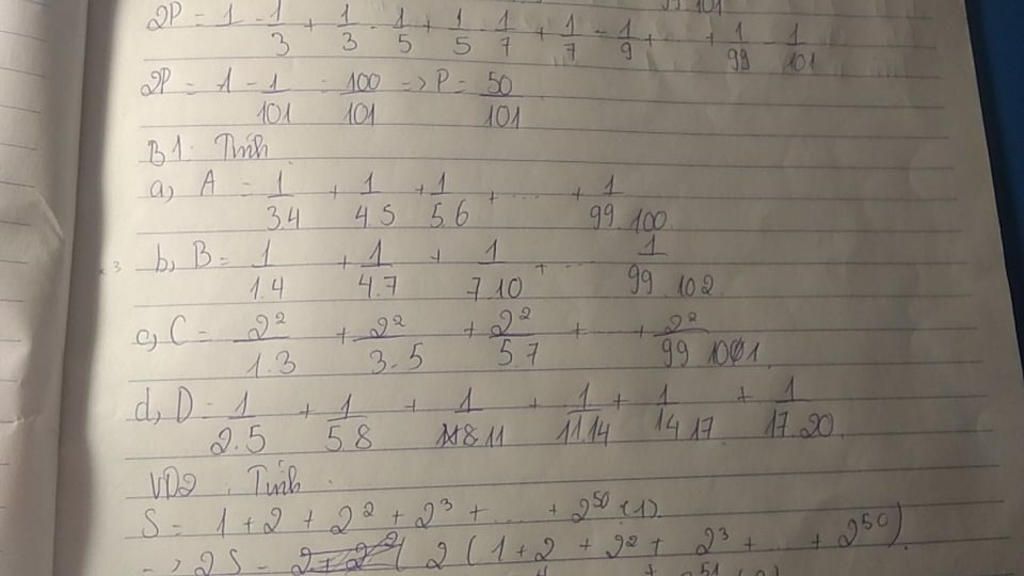 2P = 1 - 1/3 + 1/3 - 1/5 + 1/5 - 1/7 + 1/7 - 1/9 + ... + 1/99 - 1/101
2P = 1 - 1/101 = 100/101 => P = 50/101
B1. Tính
a, A = 1/3.4 + 1/4.5 + 1/5.6 + ... + 1/99.100
b, B = 1/1.4 + 1/4.7 + 1/7.10 + ... 1/99.102
c, C = 2²/1.3 + 2²/3.5 + 2²/5.7 + ... + 2²/99.101
d, D = 1/2.5 + 1/5.8 + 1/8.11 + 1/11.14 + 1/14.17 + 1/17.20
VD2. Tính
S = 1 + 2 + 2² + 2³ + ... + 2⁵⁰ (1)
-> 2S = 2 (1 + 2 + 2² + 2³ + ... + 2⁵⁰)